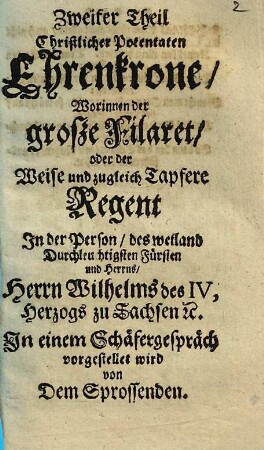 2
Zweiter Theil
Christlicher Potentaten
Ehrenkrone/
Worinnen der
große Filaret/
oder der
Weise und zugleich Tapfere
Regent
In der Person/ des weiland
Durchleu htigsten Fürsten
und Herrns/
Herrn Wilhelms des IV,
Herzogs zu Sachsen ꝛc.
In einem Schäfergespräch
vorgestellet wird
von
Dem Sprossenden.